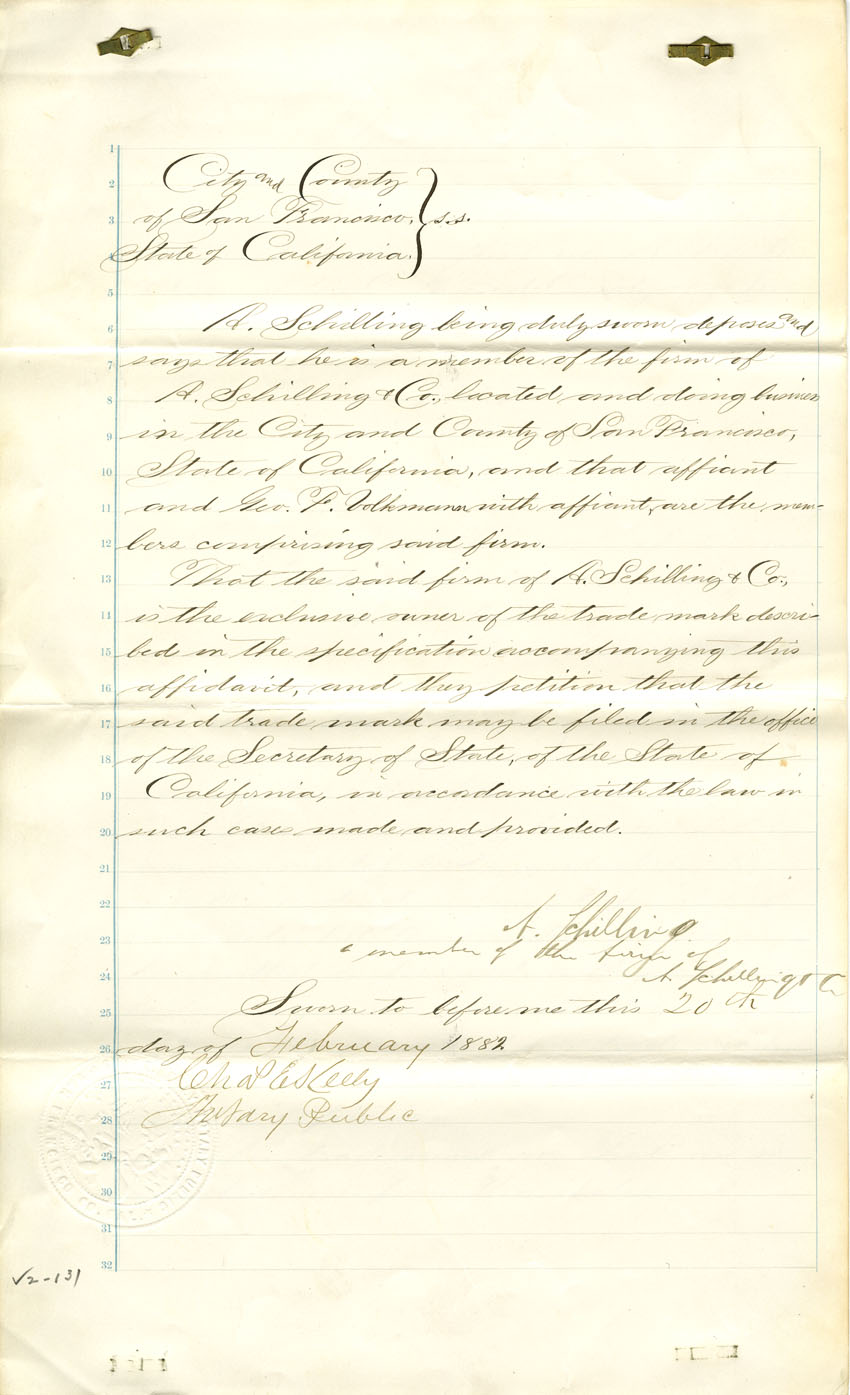 1
2 City and County
3 of San Francisco, } s.s.
4 State of California.
5
6 A. Schilling being duly sworn deposes and
7 says that he is a member of the firm of
8 A. Schilling & Co., located and doing business
9 in the City and County of San Francisco,
10 State of California, and that affiant
11 and Geo. F. Volkmann with affiant, are the mem-
12 bers comprising said firm.
13 That the said firm of A. Schilling & Co.,
14 is the exclusive owner of the trade mark descri-
15 bed in the specification accompanying this
16 affidavit, and they petition that the
17 said trade mark may be filed in the office
18 of the Secretary of State, of the State of
19 California, in accordance with the law in
20 such case made and provided.
21
22
23 A. Schilling
a member of the firm of
24 A Schilling & Co
25 Sworn to before me this 20th
26 day of February 1882
27 Chas E Kelly
28 Notary Public
29
30
31
32
V2-131